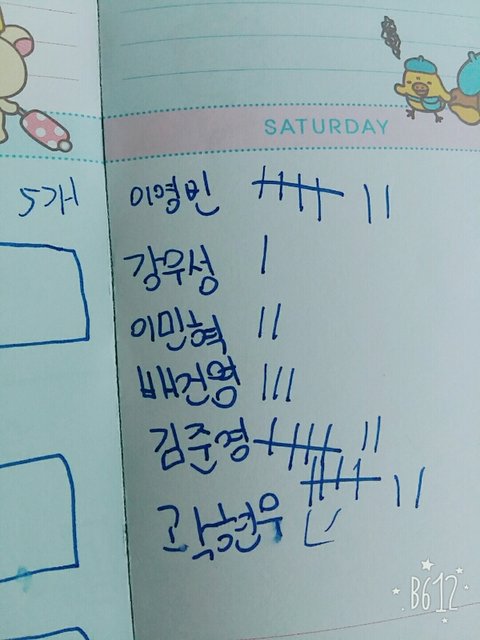 SATURDAY
5개
이영빈
강우성
이민혁
배건영
김준경
곽현우
B612